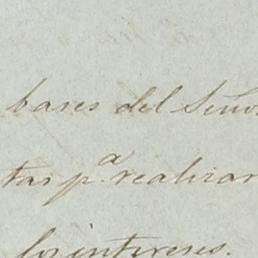 bases del Señor
tas p.a realizar
los intereses.